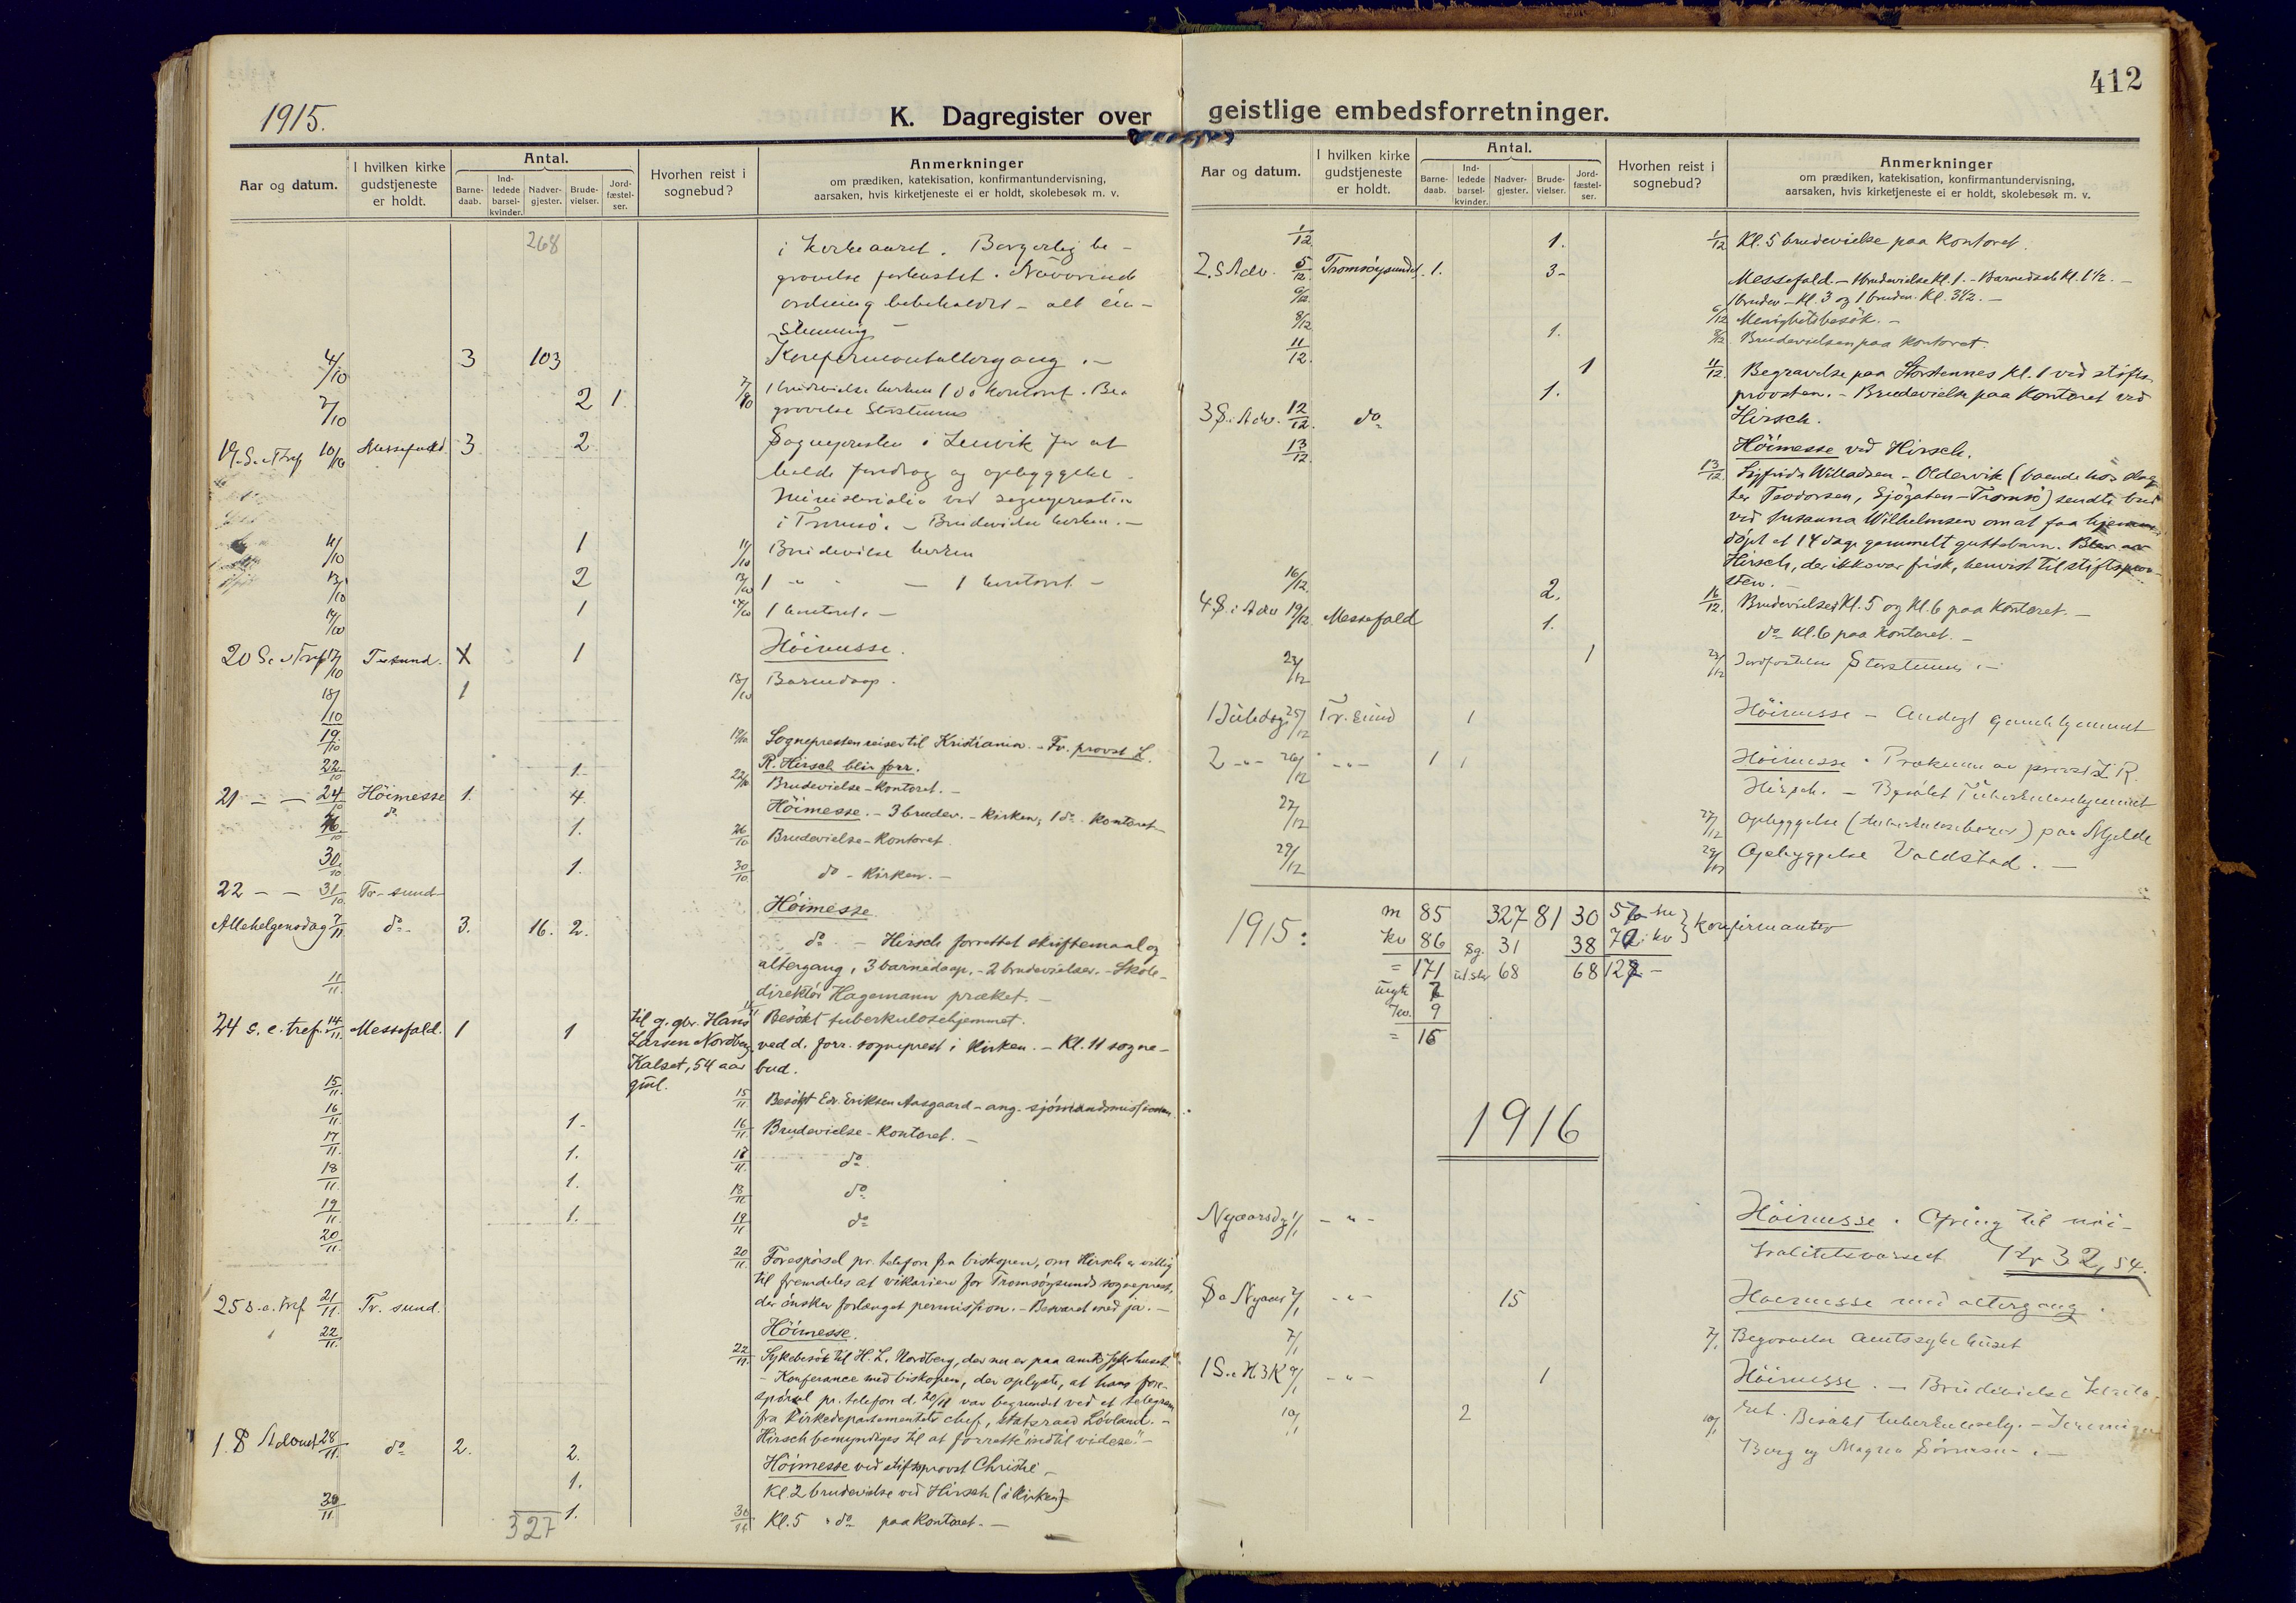 1915.
K. Dagregister over
Aar og datum.
I hvilken kirke gudstjeneste er holdt.
Antal.
Barne-daab.
Ind-ledede barsel-kvinder.
Nadver-gjester.
Brude-vielser.
Jord-fæstel-ser.
Hvorhen reist i sognebud?
Anmerkninger
om prædiken, katekisation, konfirmantundervisning,
aarsaken, hvis kirketjeneste ei er holdt, skolebesøk m. v.
268
i kirkeaaret. Borgerlig be-
gravelse forkastet. Nuværende
ordning bibeholdes - alt én-
stemmig -
4/10 3 103 Konfirmantaltergang. -
7/10 2 1 7/10 1 brudevielse kirken 1 do kontoret. Be-
gravelse Storstennes
19. S. e. Tref 10/10 Messefald. 3 2 Sognepresten i Lenvik for at
holde foredrag og opbyggelse.
Ministerialia ved sognepresten
i Tromsö. - Brudevielse kirken. -
11/10 1 11/10 Brudevielse kirken
13/10 2 13/10 1 " - 1 kontoret -
14/10 1 14/10 1 kontoret. -
20 S. e. Tref 17/10 Tr.sund. X 1 Höimesse.
18/10 1 18/10 Barnedaap.
19/10 19/10 Sognepresten reiser til Kristiania. - Fv. provst L.
R. Hirsch blir forr.
22/10 1. 22/10 Brudevielse - Kontoret. -
21 - - 24/10 Höimesse 1. 4. Höimesse. - 3 brudev. - Kirken, 1 do - Kontoret -
do
26/10 1. 26/10 Brudevielse - Kontoret.
30/10 1. 30/10 do - Kirken. -
22 - - 31/10 Tr. sund - Höimesse
Allehelgensdag 7/11 do - 3. 16. 2. do - Hirsch forrettet skriftemaal og
altergang, 3 barnedaap, - 2 brudevielser. - Skole-
direktör Hagemann præket. -
11/11 11/11 Besökt tuberkulosehjemmet.
24 s. e. tref. 14/11 Messefald. 1 1 til g. gbr. Hans ved d. forr. sogneprest i Kirken. - Kl. 11 sogne-
Larsen Nordberg, bud.
Kalset, 54 aar
gml.
15/11 15/11 Besökt Edv. Eriksen Aasgaard - ang. sjömandsmissionen
16/11 1 - 16/11 Brudevielse - Kontoret. -
17/11 1. 17/11 do
18/11 1. 18/11 do
19/11 1. 19/11 do
20/11 20/11 Forespörsel pr. telefon fra biskopen, om Hirsch er villig
til fremdeles at vikariere for Tromsöysunds sogneprest,
der önsker forlænget permission. - Besvaret med ja. -
25 s. e. tref 21/11 Tr. sund. Höimesse.
22/11 22/11 Sykebesök til H. L. Nordberg, der nu er paa amtssykehuset.
- Konferance med biskopen, der oplyste, at hans fore-
spörsel pr. telefon d. 20/11 var begrundet ved et telegram
fra Kirkedepartementets chef, statsraad Lövland. -
Hirsch bemyndiges til at forrette "indtil videre." -
1. S Advent 28/11 do 2. 2. Höimesse ved stiftsprovst Christie -
1. Kl. 2 brudevielse ved Hirsch (i Kirken)
30/11 1. 30/11 Kl. 5 do paa Kontoret. -
327
412
geistlige embedsforretninger.
Aar og datum.
I hvilken kirke gudstjeneste er holdt.
Antal.
Barne-daab.
Ind-ledede barsel-kvinder.
Nadver-gjester.
Brude-vielser.
Jord-fæstel-ser.
Hvorhen reist i sognebud?
Anmerkninger
om prædiken, katekisation, konfirmantundervisning,
aarsaken, hvis kirketjeneste ei er holdt, skolebesøk m. v.
1/12 1. 1/12 Kl. 5 brudevielse paa Kontoret.
2. S Adv. 5/12 Tromsöysundet. 1. 3 - Messefald. - 1 brudevielse Kl. 1. - Barnedaab Kl. 1 1/2. -
1 brudev - Kl. 3 og 1 brudev. Kl. 3 1/2. -
6/12 6/12 Menighetsbesök. -
8/12 1. 8/12 Brudevielsen paa Kontoret.
11/12 1 11/12 Begravelse paa Storstennes Kl. 1 ved stifts-
1. provsten. - Brudevielse paa Kontoret ved
Hirsch.
3 S. i Adv. 12/12 do - Höimesse ved Hirsch.
13/12 13/12 Sigfrida Willadsen - Oldervik (boende hos
Teodorsen, Sjögaten - Tromsö) sendte bud
ved Susanna Wilhelmsen om at faa hjemme-
döpt et 14 dage gammelt guttebarn. Blev av
Hirsch, der ikke var frisk, henvist til stiftsprov-
sten. -
16/12 2. 16/12 Brudevielser Kl. 5 og Kl. 6 paa Kontoret. -
4 S. i Adv 19/12 Messefald 1. do Kl. 6 paa Kontoret. -
23/12 1 23/12 Jordfæstelse Storstennes. -
1 Juledag 25/12 Tr. sund 1 Höimesse - Andagt Gamlehjemmet
2 - " - 26/12 - " - 1 1 Höimesse. Præken av provst L. R.
Hirsch. - Besökt Tuberkulosehjemmet
27/12 27/12 Opbyggelse (tuberkulosebören) paa Mjelde
29/12 29/12 Opbyggelse Valdstad. -
1915: m 85 327 81 30 57 m } Konfirmanter
kv 86 sg. 31 38 70 kv
= 171 68 68 127 -
uegte 7
kv. 9
= 16
1916
Nyaarsdg 1/1 - " - Höimesse. Ofring til nöi-
tralitetsværnet Kr 32,54.
S e Nyaar 2/1 - " - 15 Höimesse med altergang.
7/1 7/1 Begravelse Amtssykehuset
1 S. e H 3 K 9/1 - " - 1 Höimesse. - Brudevielse
10/1 2 10/1 Besökt tuberkulosehj. -
Berg og Magna Sörensen. -